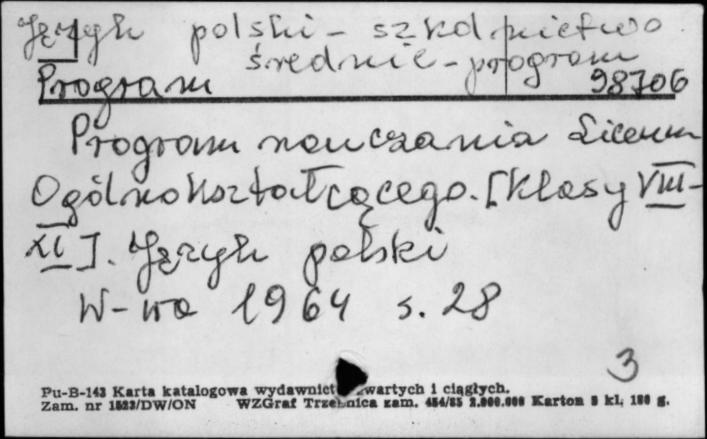 Język polski - szkolnictwo
średnie - program
Program 98706
Program nauczania Liceum
Ogólnokształcącego. [Klasy VIII-
XI]. Język polski
W-wa 1964 s. 28
3
Pu-B-143 Karta katalogowa wydawnict wartych i ciągłych.
Zam. nr 1523/DW/ON WZGraf Trzebnica zam. 454/85 2.000.000 Karton 3 kl. 180 g.